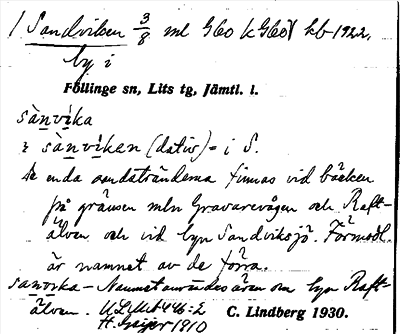 1 Sandviken 3/8 ml G60 k G60 kb 1922.
by i
Föllinge sn, Lits tg, Jämtl. l.
sànvika
i sànviken (dativ) = i S.
De enda sandstränderna finnas vid bäcken
på gränsen mln Gravarevågen och Raft-
älven och vid byn Sandviksjö. Förmodl.
är namnet av de förra.
sanvska - Namnet användes även om byn Raft-
älven. ULMA 446:2 C. Lindberg 1930.
H. Geijer 1910